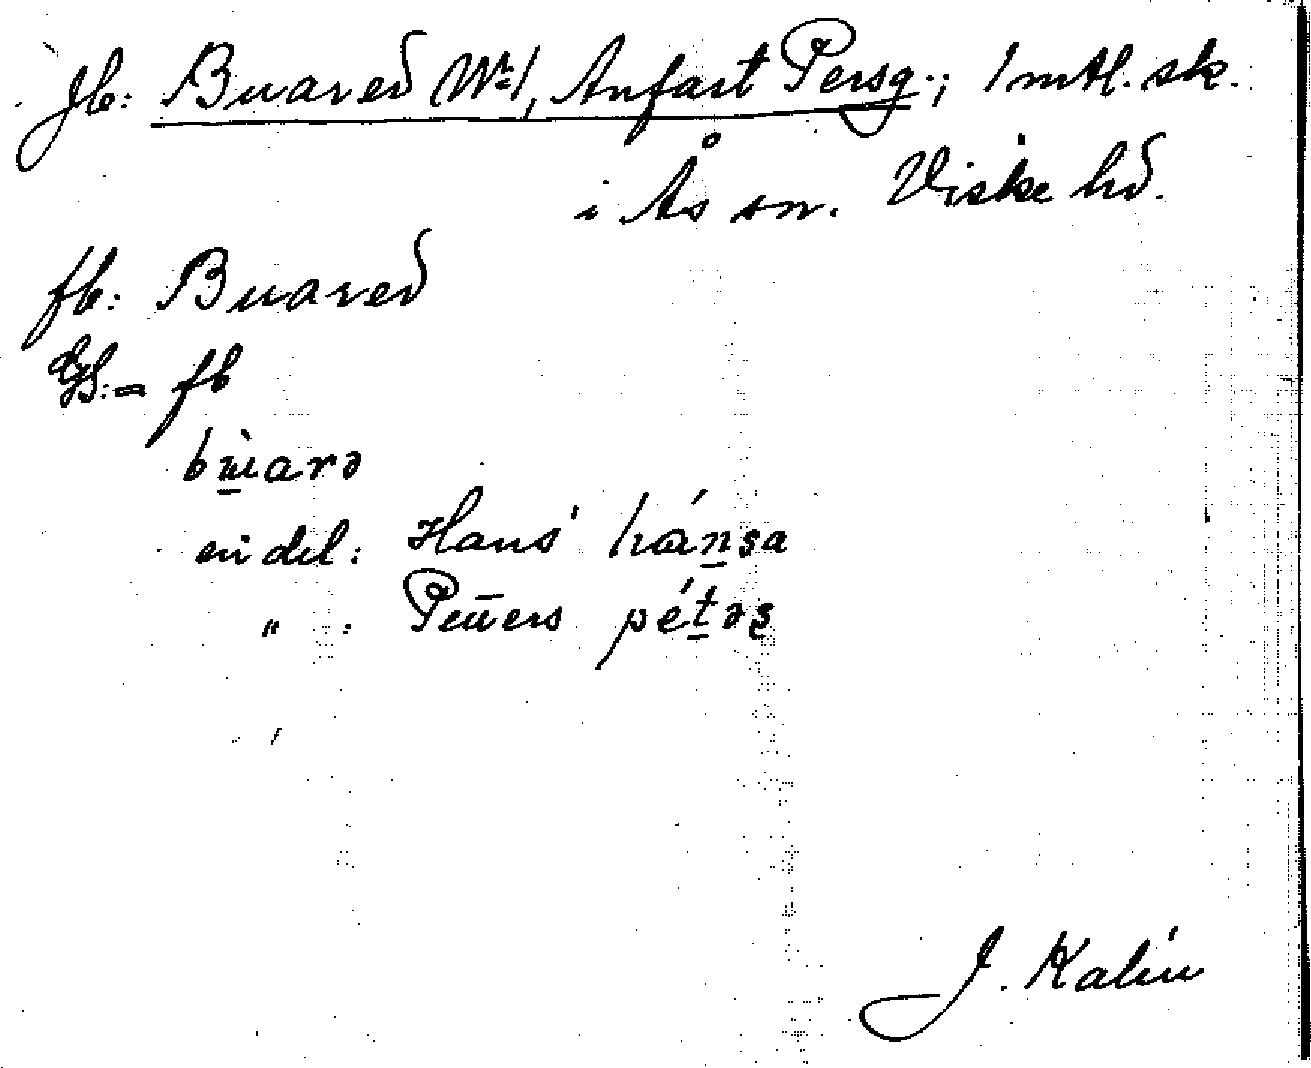 Jb: Buared No 1, Anfast Persg.; 1 mtl. sk.
i Ås sn. Viske hd.
fb: Buared
Gs: = fb
en del: Hans' hánsa
" : Petters pétəs
J. Kalén